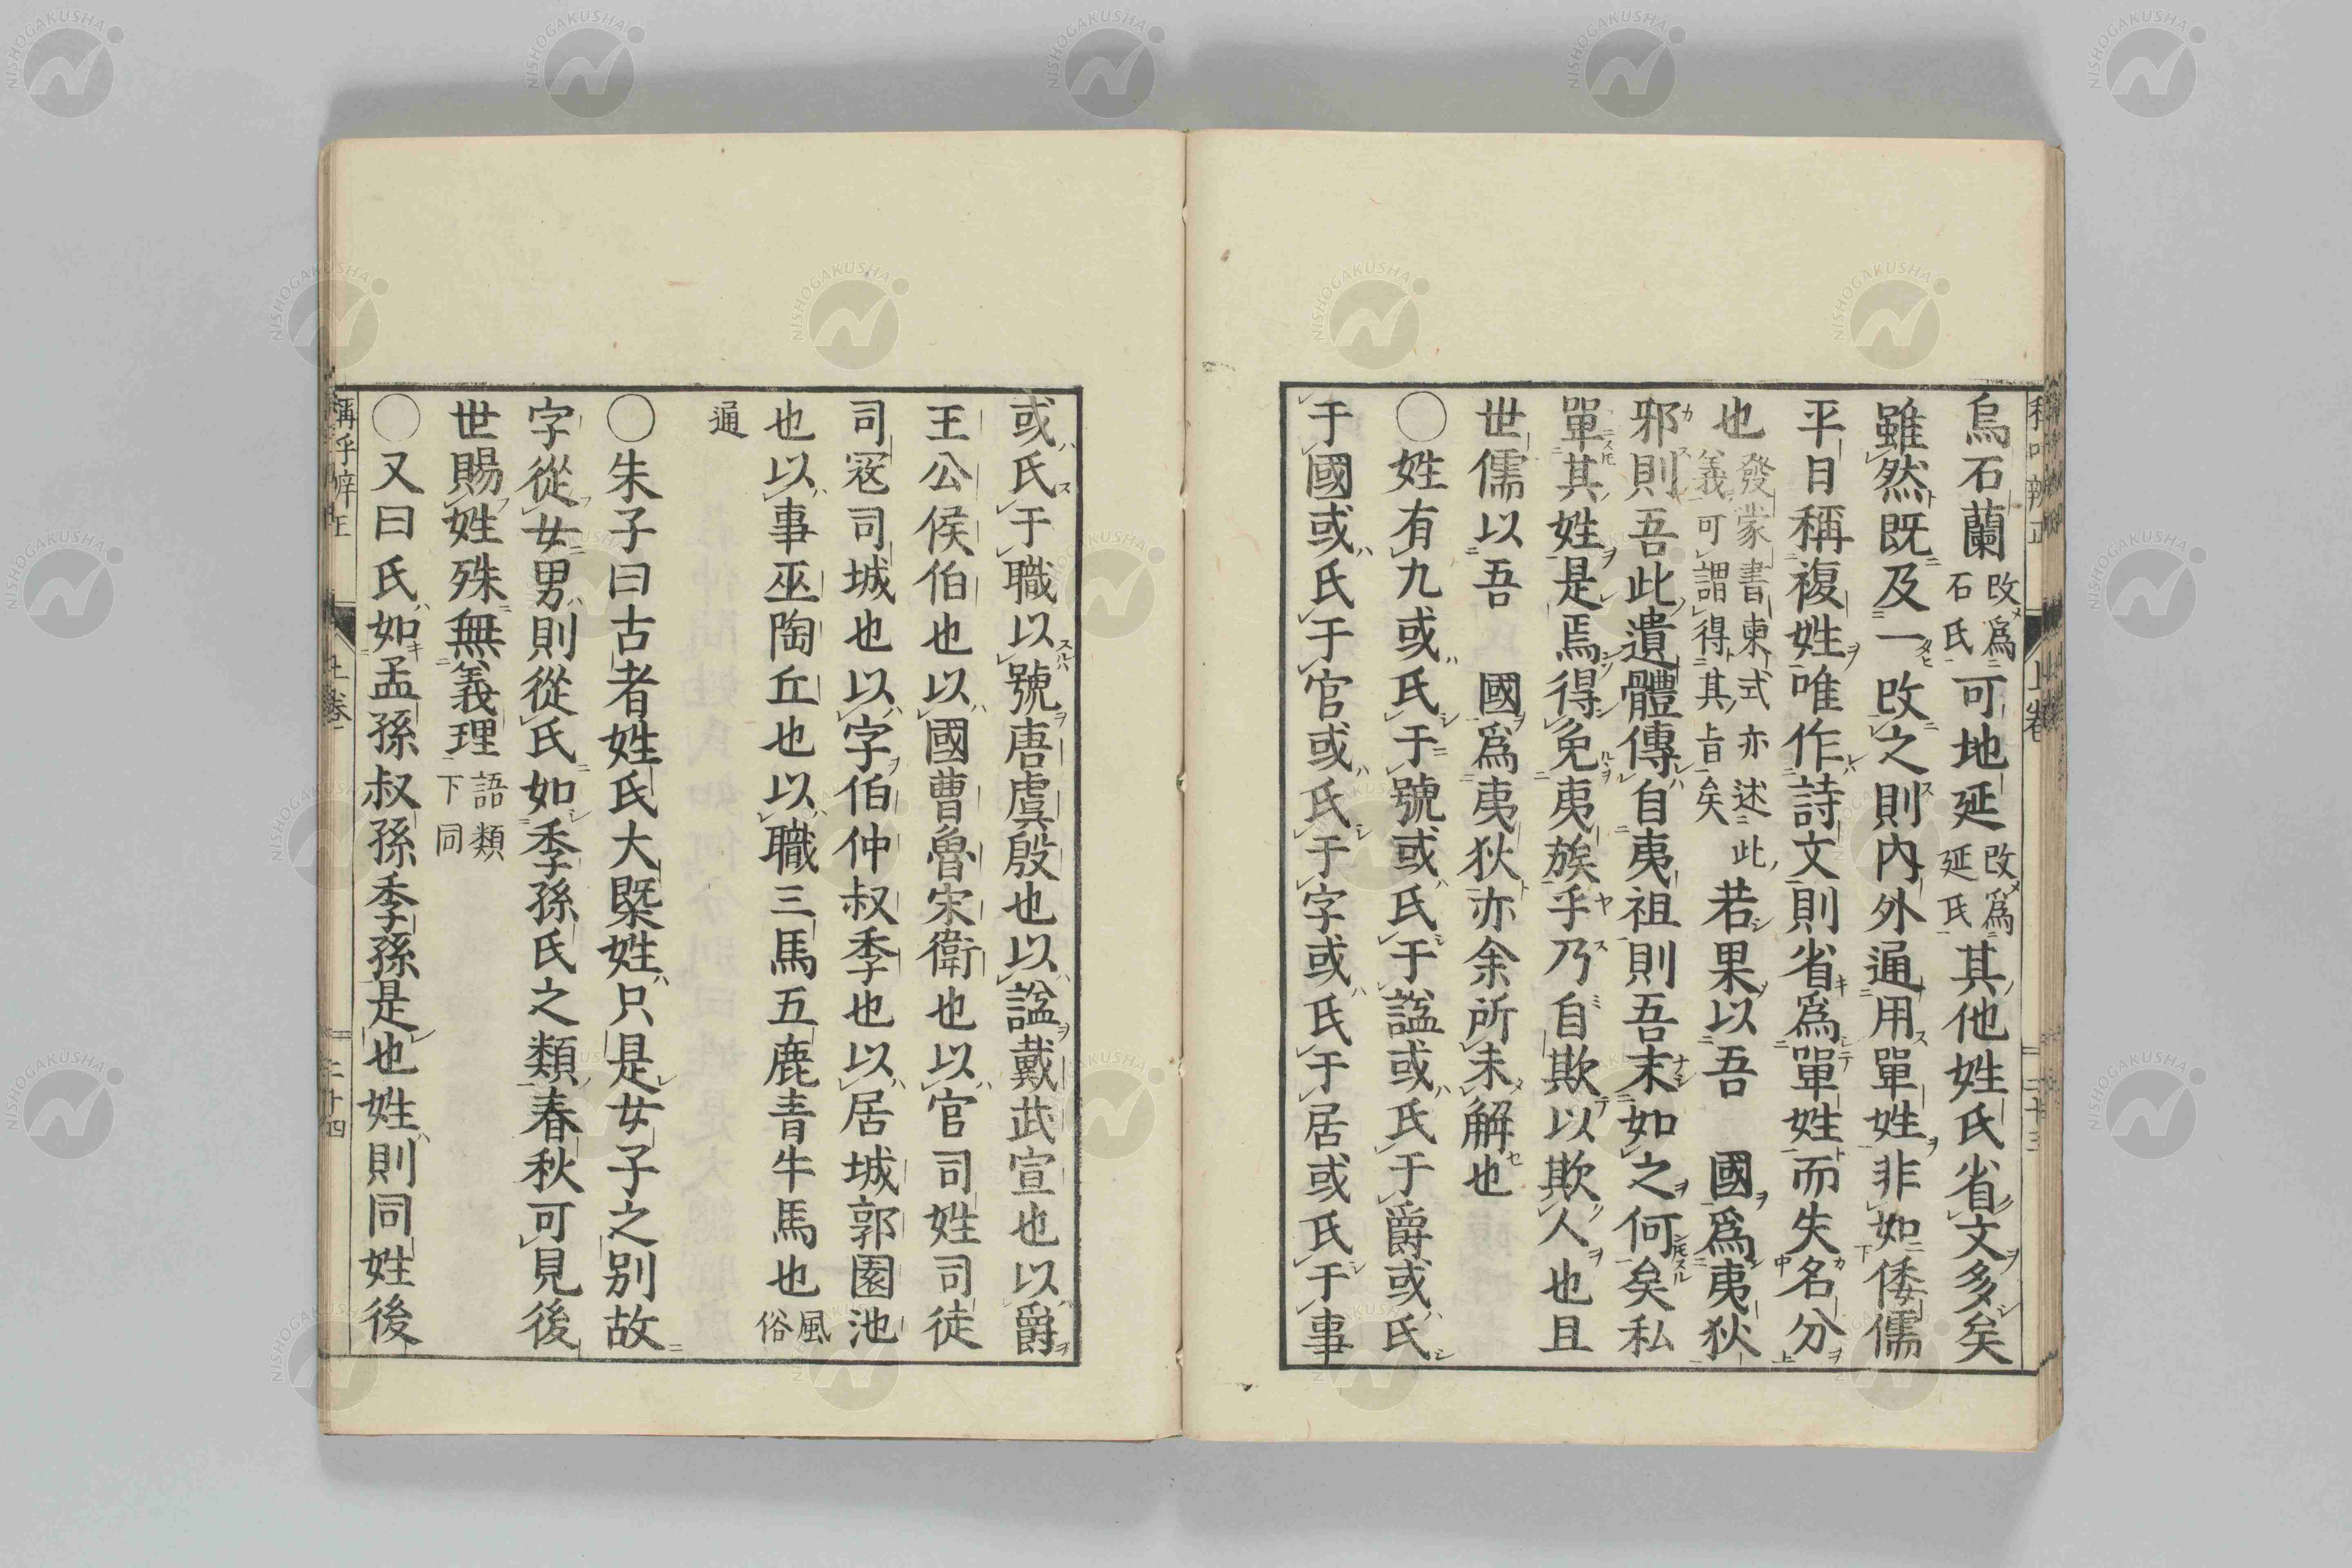 烏石蘭改爲石氏可地延改爲延氏其他姓氏省文多矣
雖然既及一改之則内外通用單姓非如倭儒
平日稱複姓唯作詩文則省爲單姓而失名分
也發蒙書柬式亦述此義可謂得其旨矣若果以吾　國爲夷狄
邪則吾此遺體傳自夷祖則吾末如之何矣私
單其姓是焉得免夷族乎乃自欺以欺人也且
世儒以吾　國爲夷狄亦余所未解也
〇姓有九或氏于號或氏于諡或氏于爵或氏
于國或氏于官或氏于字或氏于居或氏于事
或氏于職以號唐虞殷也以諡戴武宣也以爵
王公侯伯也以國曹魯宋衛也以官司姓司徒
司寇司城也以字伯仲叔季也以居城郭園池
也以事巫陶丘也以職三馬五鹿青牛馬也風俗
通
〇朱子曰古者姓氏大槩姓只是女子之別故
字從女男則從氏如季孫氏之類春秋可見後
世賜姓殊無義理語類下同
〇又曰氏如孟孫叔孫季孫是也姓則同姓後
稱乎辨正
上卷
二十四
上卷
二十三
NISHOGAKUSHA